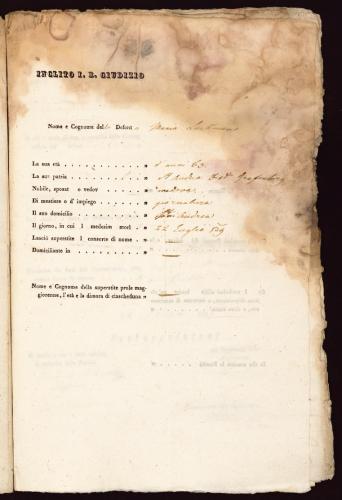 INCLITO I. R. GIUDIZIO
Nome e Cognome del Defont Maria
La sua età . . . . . . . . . . . . „ d'anni 63
La sua patria . . . . . . . . . . „ S. Andrea
Nobile, sposat o vedov . . . . . . „ vedova
Di mestiere o d' impiego . . . . . . „ giornaliera
Il suo domicilio . . . . . . . . . . „ Sant'Andrea
Il giorno, in cui l medesim morì . . . „ 22 Luglio
Lasciò superstite l consorte di nome . . „ —
Domiciliante in . . . . . . . . . . „
Nome e Cognome della superstite prole mag-
giorenne, l'età e la dimora di ciascheduna „ —